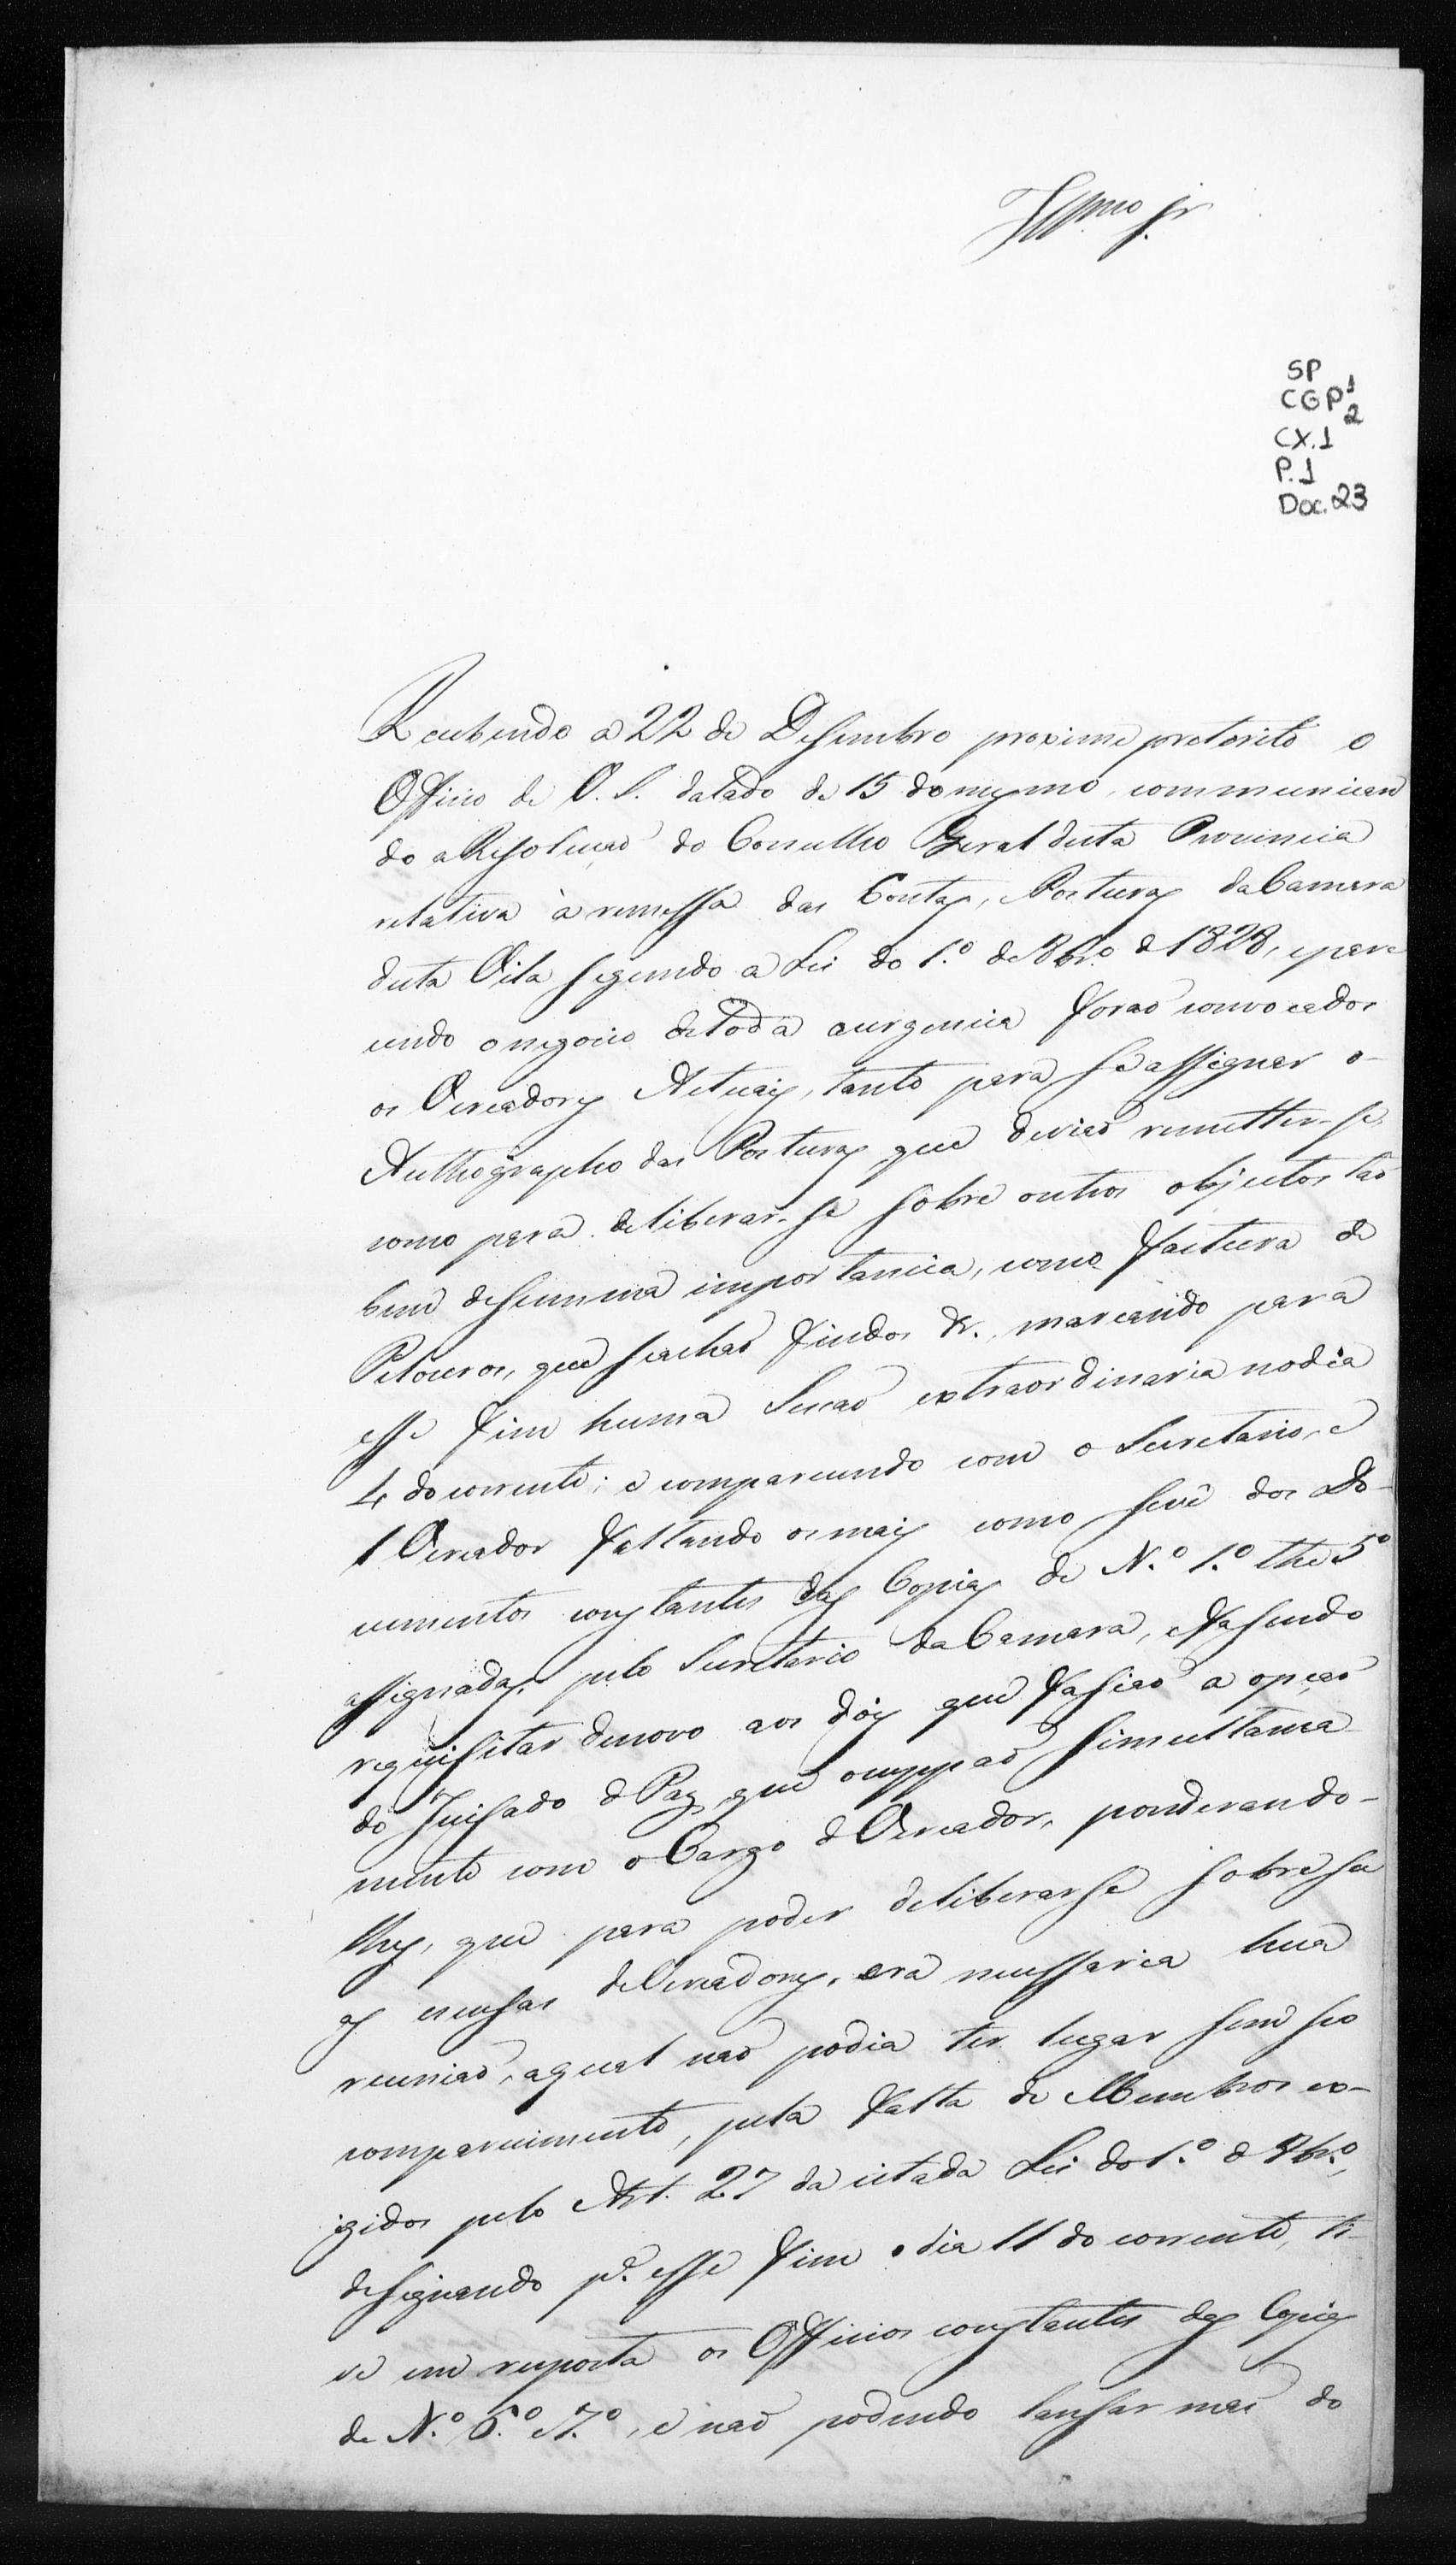 Illmo Sr
SP
CGP1
2
CX.1
P.1
Doc.23
Recebendo a 22 de Desembro proximo preterito o
Officio de V. S. datado de 15 do mesmo, communican
do a Resolução do Conselho Geral desta Provincia
relativa à remessa das Contas, Posturas da Camara
desta Villa segundo a Lei do 1.º de 8br.º d 1828, epare
cendo onegocio detoda aurgencia forão convocados
os Vereadores Actuais, tanto para se assignar o
Authographo das Posturas que devião remetter-se,
como para deliberar-se sobre outros objectos tão
bem desumma importancia, como factura de
Pelouros, que seachão findos &., marcando para
esse fim huma Secão extraordinaria nodia
4 do corrente; e comparecendo com o Secretario, e
1 Vereador faltando os mais como sevê dos Do-
cumentos constantes das Copias de N.º 1.º the 5º
assignadas pelo Secretario da Camara, efasendo
requisitar denovo aos dois que fasião a opção
do Juisado d Paz, que ocuppão simultania
mente com o Cargo d Vereador, ponderando-
lhes, que para poder deliberarse sobre se
as escusas deVereadores, era necessaria hua
reunião, aqual não podia ter lugar sem seo
comparecimento, pela falta de Membros ex-
igidos pelo Art. 27 da citada Lei do 1.º d 8br.º,
designando p.ª esse fim o dia 11 do corrente, ti-
ve em resposta os Officios constantes das Copias
de N.º 6.º e 7.º, e não podendo lansar mão do